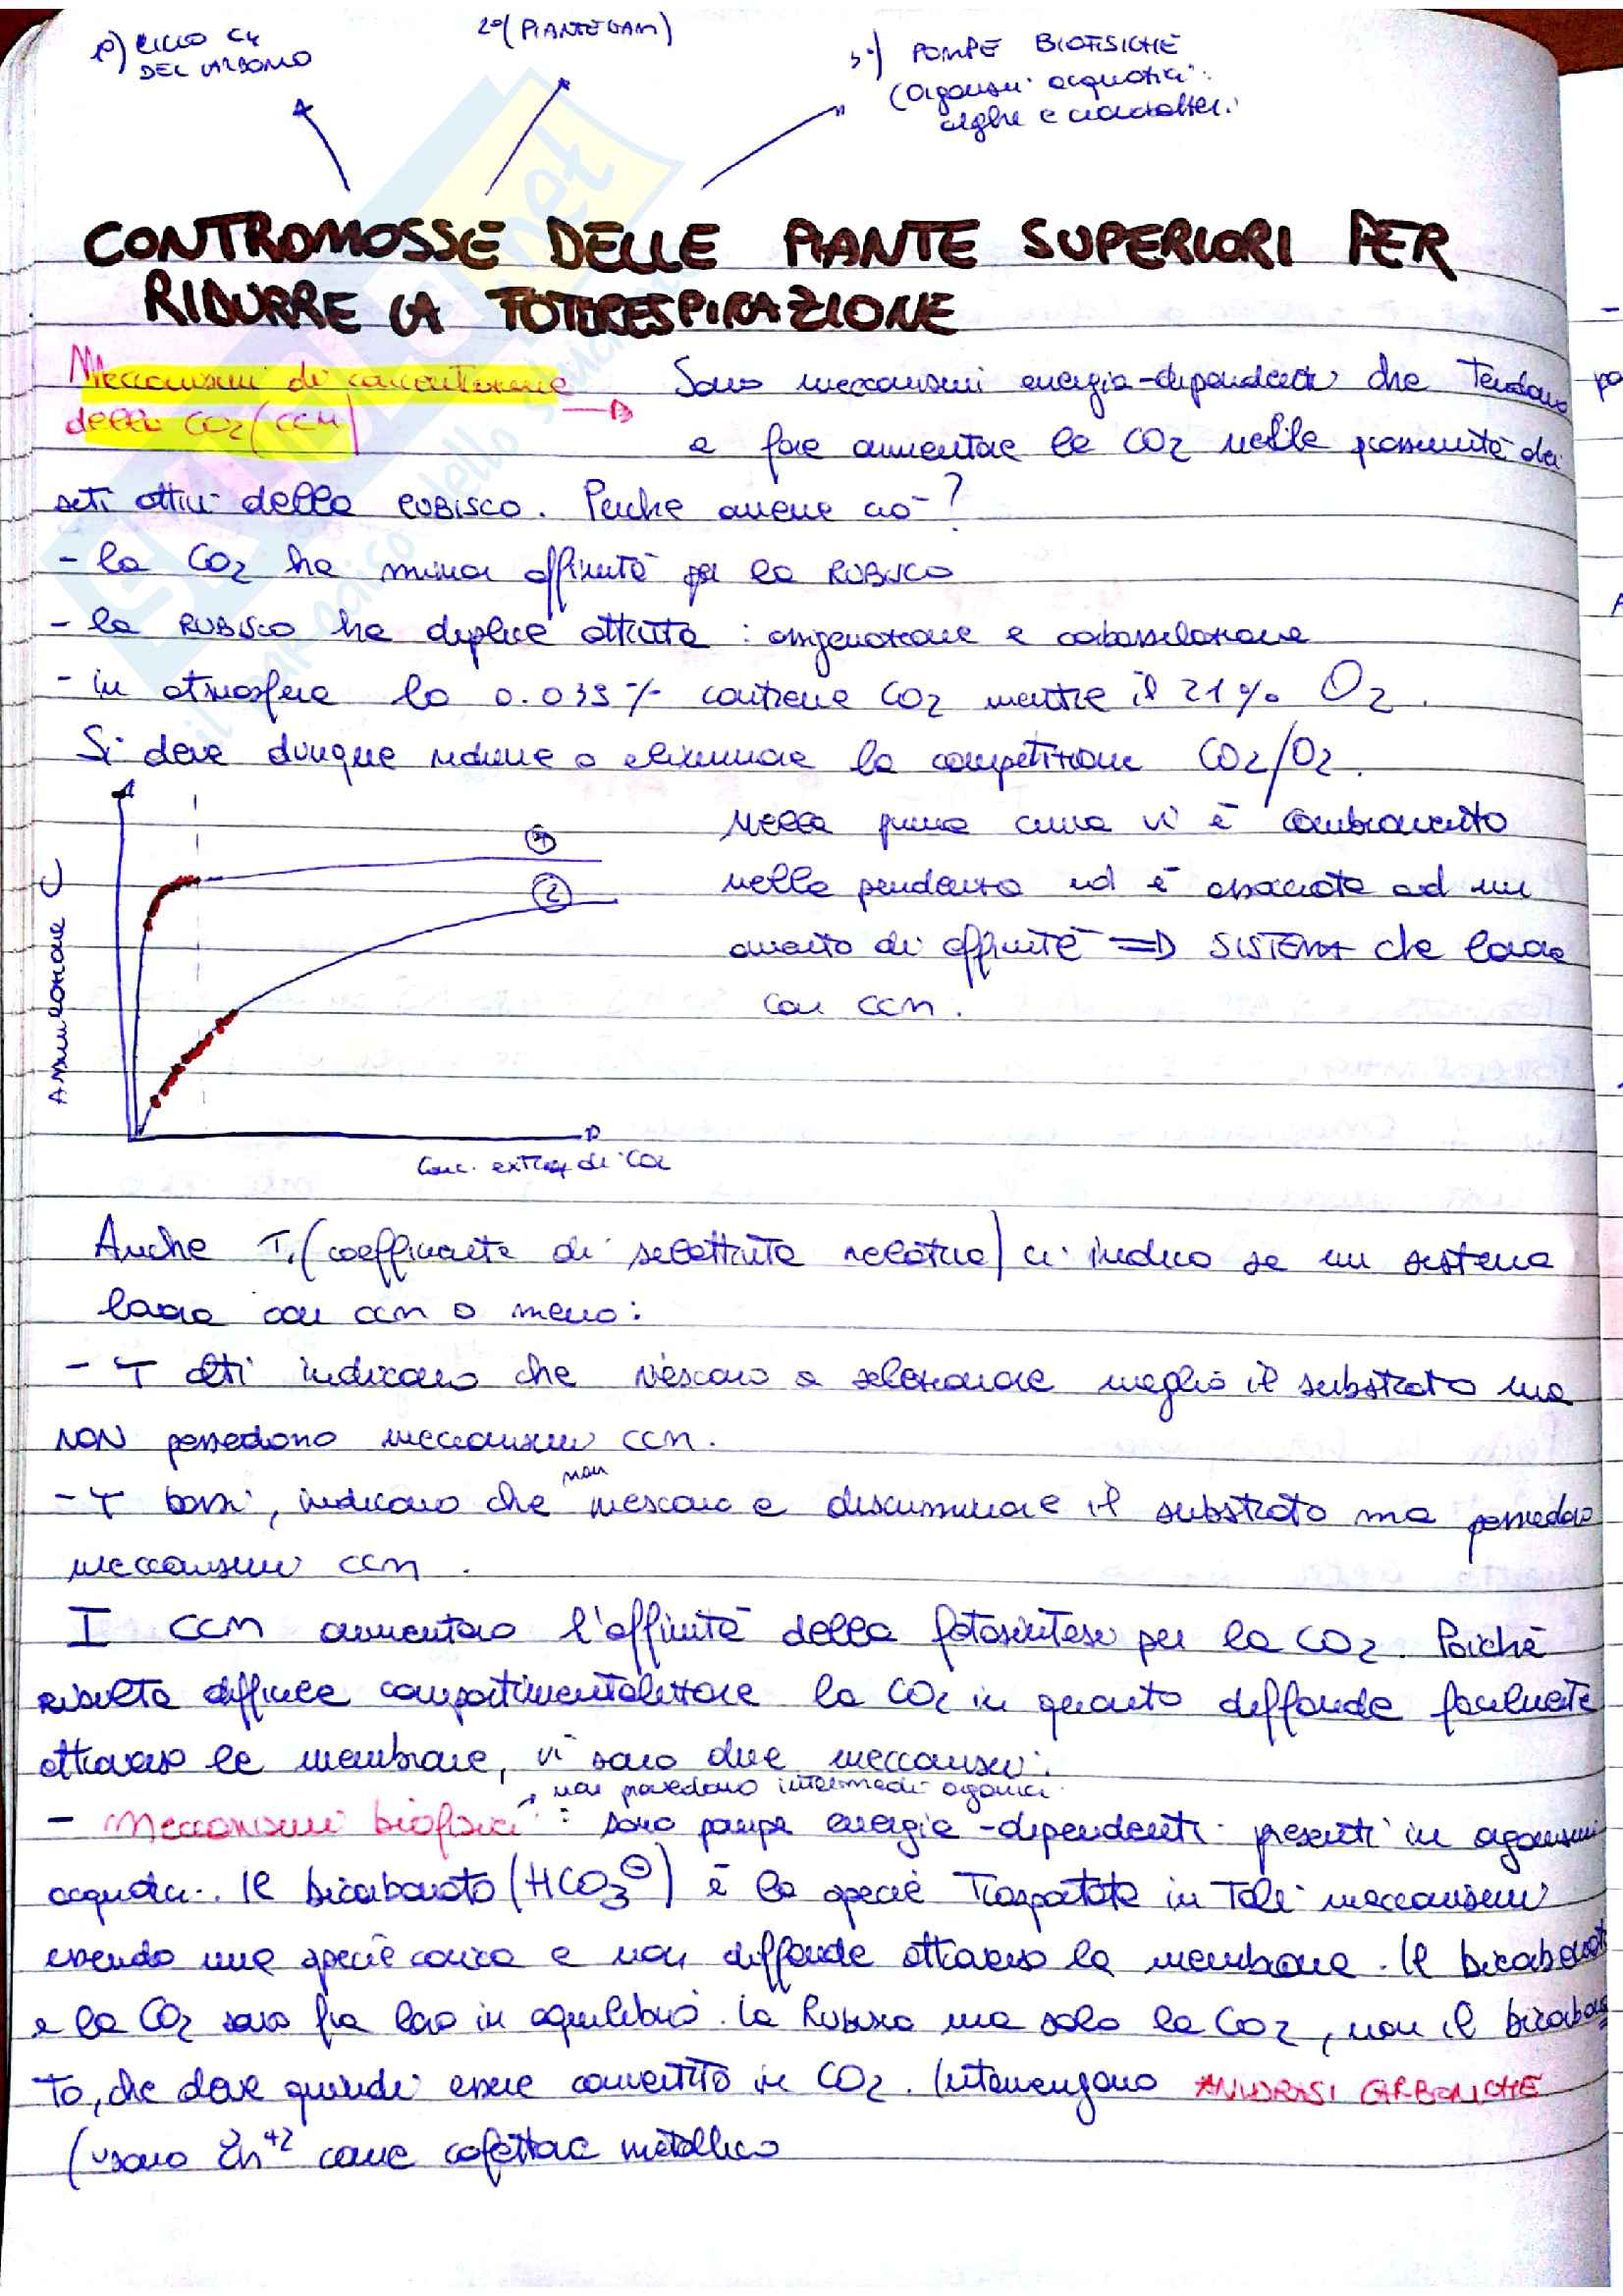 1°) CICLO C4
DEL CARBONIO
2°(PIANTE CAM)
3°) POMPE BIOFISICHE
(organismi acquatici:
alghe e cianobatteri)
CONTROMOSSE DELLE PIANTE SUPERIORI PER
RIDURRE LA FOTORESPIRAZIONE
Meccanismi di concentrazione
della CO2 (CCM)
Sono meccanismi energia-dipendenti che tendono
a fare aumentare la CO2 nelle prossimità dei
siti attivi della RUBISCO. Perche avviene ciò?
- la CO2 ha minor affinità per la RUBISCO
- la RUBISCO ha duplice attività : ossigenazione e carbossilazione
- in atmosfera lo 0.035% contiene CO2 mentre il 21% O2.
Si deve dunque ridurre o eliminare la competizione CO2/O2.
Nella prima curva vi è cambiamento
nella pendenza ed è associata ad un
aumento di affinità => SISTEMA che lavora
con CCM.
Assimilazione C
1
2
Conc. extrac. di CO2
Anche τ (coefficiente di selettività relativa) ci indica se un sistema
lavora con CCM o meno:
- τ alti indicano che riescono a selezionare meglio il substrato ma
NON possiedono meccanismi CCM.
- τ bassi, indicano che non riescono a discriminare il substrato ma possiedono
meccanismi CCM.
I CCM aumentano l'affinità della fotosintesi per la CO2. Poichè
risulta difficile compartimentalizzare la CO2 in quanto diffonde facilmente
attraverso le membrane, vi sono due meccanismi:
non possiedono intermedi organici
- Meccanismi biofisici : sono pompe energia-dipendenti presenti in organismi
acquatici. Il bicarbonato (HCO3-) è la specie trasportata in tali meccanismi
essendo una specie carica e non diffonde attraverso la membrana. Il bicarbonato
e la CO2 sono fra loro in equilibrio. La Rubisco usa solo la CO2, non il bicarbona
to, che deve quindi essere convertito in CO2. Intervengono ANIDRASI CARBONICHE
(usano Zn+2 come cofattore metallico